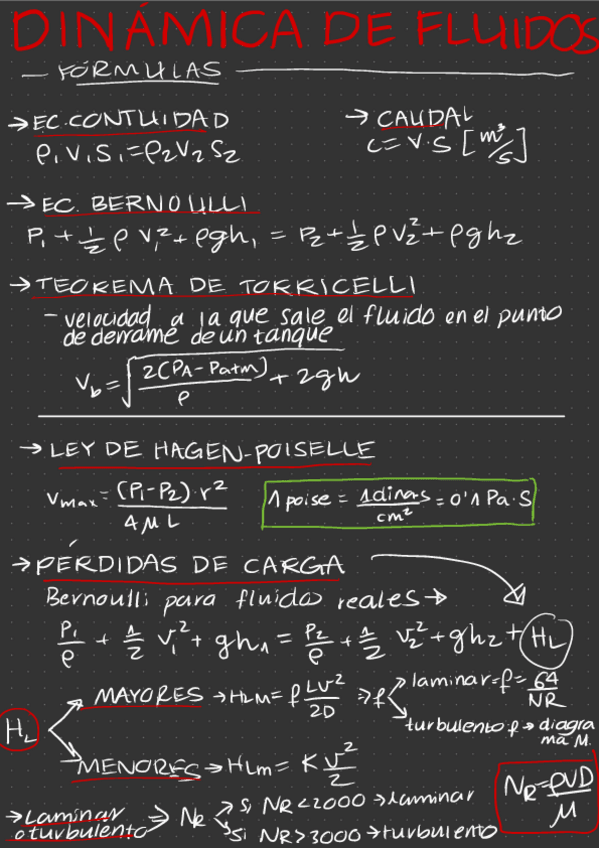 DINÁMICA DE FLUIDOS
— FÓRMULAS
→ EC. CONTUIDAD
ρ₁V₁S₁=ρ₂V₂S₂
→ CAUDAL
C= V·S [m³/s]
→ EC. BERNOULLI
P₁ + 1/2 ρ V₁² + ρgh₁ = P₂ + 1/2 ρ V₂² + ρgh₂
→ TEOREMA DE TORRICELLI
- velocidad a la que sale el fluido en el punto
de derrame de un tanque
V_b = √(2(PA - Patm)/ρ) + 2gh
→ LEY DE HAGEN-POISELLE
Vmax = (P₁-P₂)·r²/4μL
1 poise = 1dina·s/cm² = 0'1 Pa·S
→ PÉRDIDAS DE CARGA
Bernoulli para fluido reales →
P₁/ρ + 1/2 V₁² + gh₁ = P₂/ρ + 1/2 V₂² + gh₂ + HL
HL
MAYORES → HLM = f LV²/2D ⇒ f
laminar = f = 64/NR
turbulento f → diagra
ma M.
MENORES → HLm = K V²/2
→ Laminar
o turbulento ⇒ NR
Si NR < 2000 → laminar
Si NR > 3000 → turbulento
NR = ρVD/μ